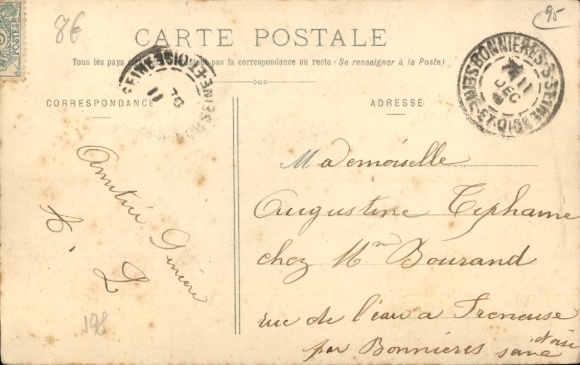 95
8€
CARTE POSTALE
Tous les pays pas la correspondance au recto (Se renseigner à la Poste)
CORRESPONDANCE
ADRESSE
BONNIERES-S-SEINE
SEINE-ET-OISE
11
DEC
11
Amitié Sincère
L
198
Mademoiselle
Augustine Tiphaine
chez Mme Bourand
rue de l'eau a Freneuse
par Bonnieres seine
et oise